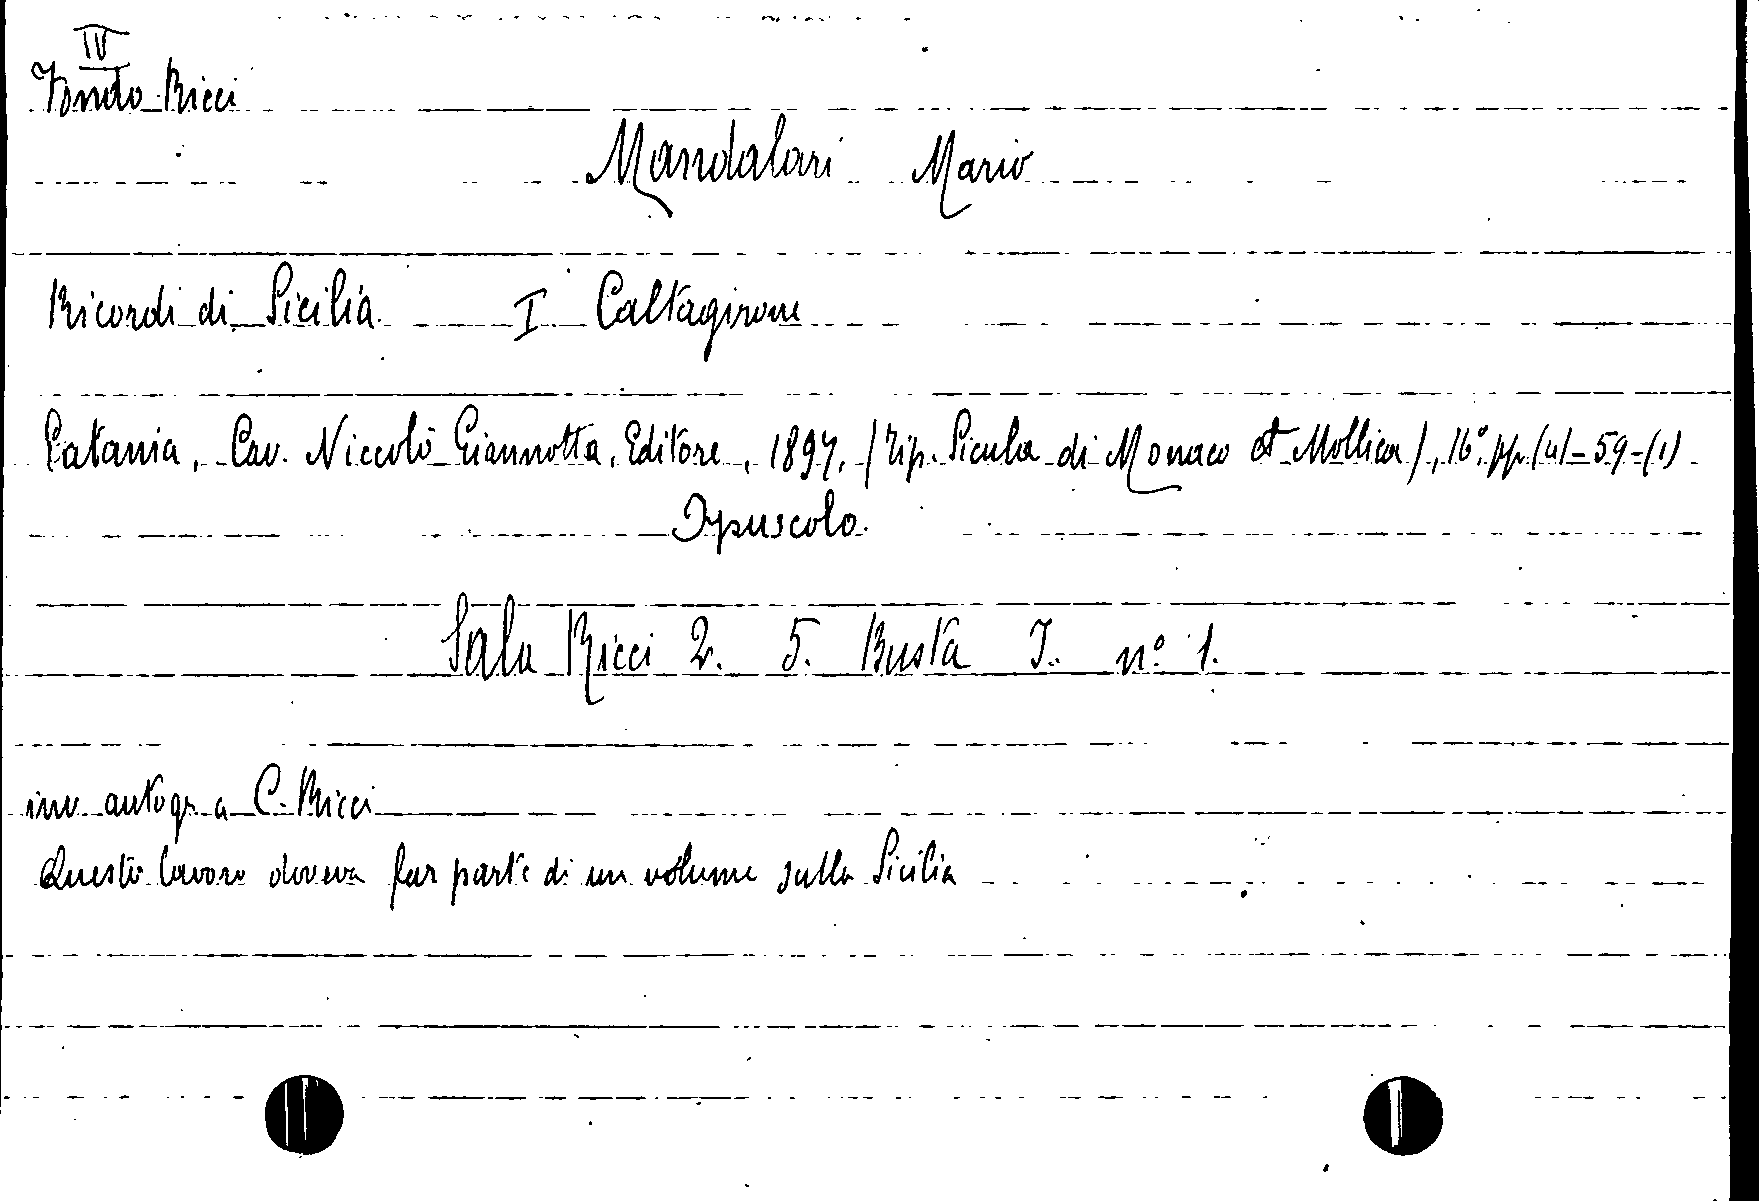 IV
Fondo Ricci
Mandalari Mario
Ricordi di Sicilia. I Caltagirone
Catania, Cav. Niccolò Giannotta, Editore, 1897, (Tip. Sicula di Monaco et Mollica), 16° pp. (4)-59-(1)
Opuscolo.
Sala Ricci 2. 5. Busta I. n° 1.
inv. autogr. a C. Ricci
Questo lavoro doveva far parte di un volume sulla Sicilia